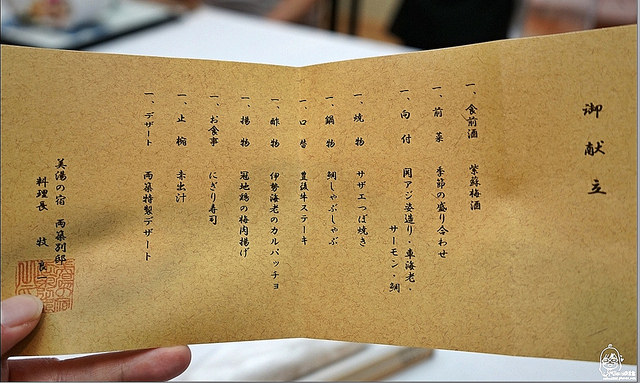 御献立
一、食前酒 紫蘇梅酒
一、前菜 季節の盛り合わせ
一、向付 関アジ姿造り・車海老・
サーモン・鯛
一、焼物 サザエつぼ焼き
一、鍋物 鯛しゃぶしゃぶ
一、口替 豊後牛ステーキ
一、酢物 伊勢海老のカルパッチョ
一、揚物 冠地鶏の梅肉揚げ
一、お食事 にぎり寿司
一、止椀 赤出汁
一、デザート 両築特製デザート
美湯の宿 両築別邸
料理長 牧 良一